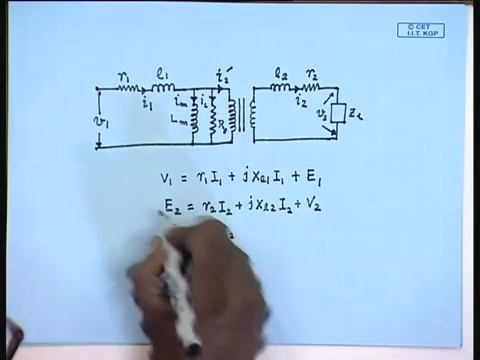 © CET
I.I.T. KGP
r₁ l₁ i₂′ l₂ r₂
i₁ iₘ i_c i₂
v₁ Lₘ v₂ Z_L
V₁ = r₁I₁ + jx_l1 I₁ + E₁
E₂ = r₂I₂ + jx_l2 I₂ + V₂
₂